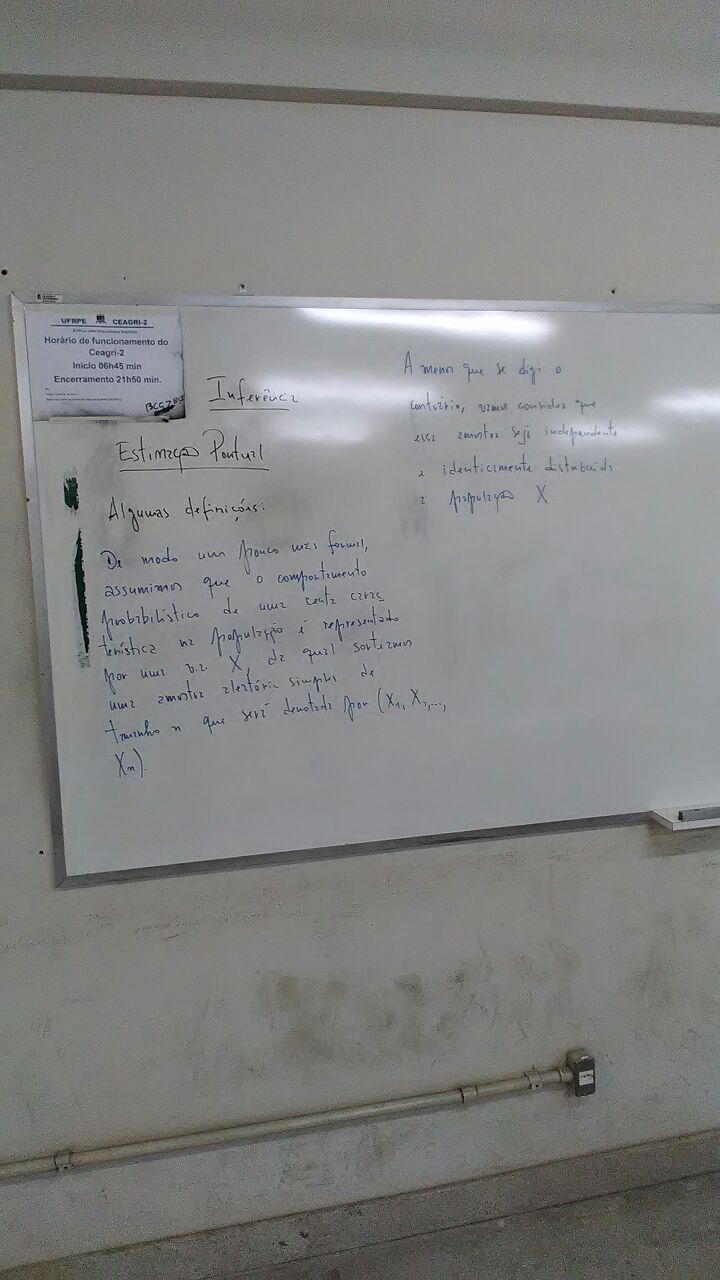 UFRPE CEAGRI-2
Horário de funcionamento do
Ceagri-2
Início 06h45 min
Encerramento 21h50 min.
Inferência
Estimação Pontual
Algumas definições:
De modo um pouco mais formal,
assumimos que o comportamento
probabilístico de uma certa carac
terística na população é representado
por uma v.a. X, da qual sorteamos
uma amostra aleatória simples de
tamanho n que será denotada por (X₁, X₂,...,
Xn).
A menos que se diga o
contrário, vamos considerar que
essa amostra seja independente
e identicamente distribuída
a população X